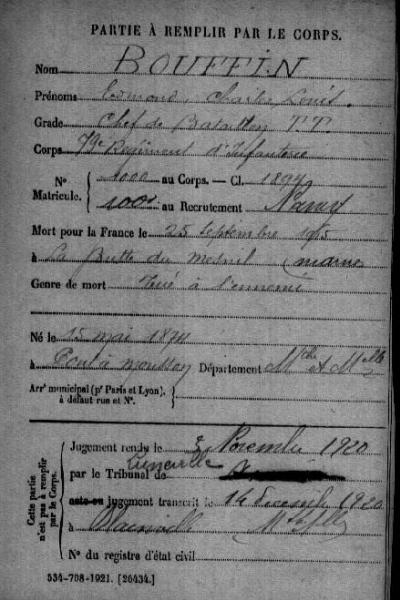 PARTIE À REMPLIR PAR LE CORPS.
Nom BOUFFIN
Prénoms Edmond, Charles Louis.
Grade Chef de Bataillon T.T.
Corps 79e Régiment d'Infanterie
N° Matricule. 1000 au Corps. — Cl. 1894
1001 au Recrutement Nancy
Mort pour la France le 25 septembre 1915
à La Butte du Mesnil (Marne
Genre de mort Tué à l'ennemi
Né le 15 mai 1874
à Pont à Mousson Département Mthe et Mlle
Arrt municipal (pr Paris et Lyon), à défaut rue et N°.
Cette partie n'est pas à remplir par le Corps.
Jugement rendu le 3 Novembre 1920
par le Tribunal de Lunéville
acte ou jugement transcrit le 14 Décembre 1920
à Blainville
N° du registre d'état civil
534-708-1921. [26434.]